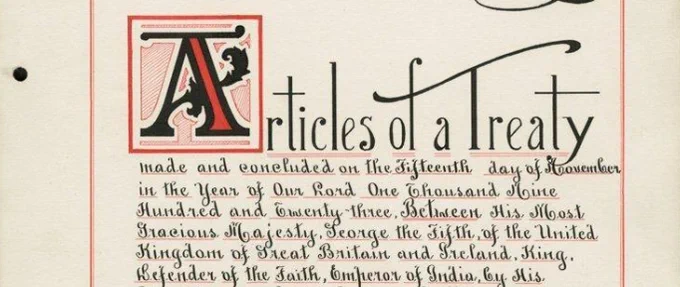 Articles of a Treaty
made and concluded on the Fifteenth day of November
in the Year of Our Lord One Thousand Nine
Hundred and Twenty-three, Between His Most
Gracious Majesty, George the Fifth, of the United
Kingdom of Great Britain and Ireland, King,
Defender of the Faith, Emperor of India, by His